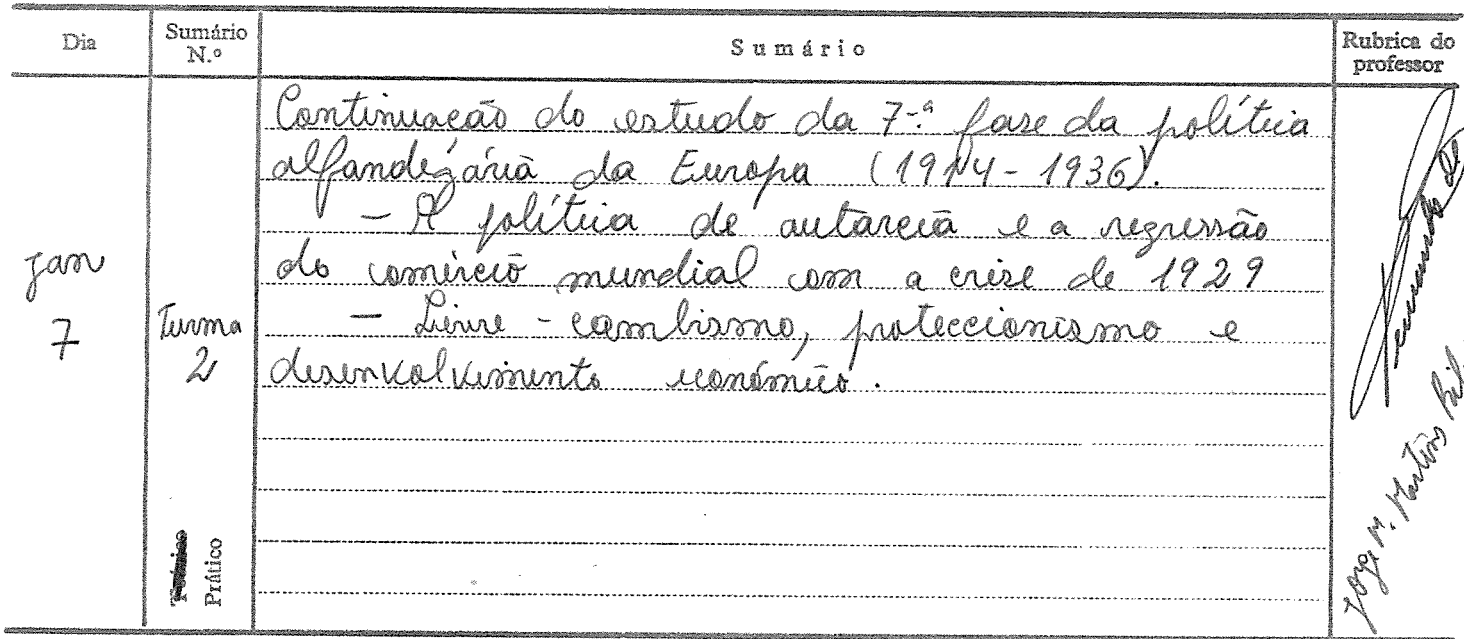 Dia
Sumário N.º
Sumário
Rubrica do professor
Jan
7
Turma
2
Prático
Continuação do estudo da 7.ª fase da política
alfandegária da Europa (1914-1936).
— A política de autarcia e a regressão
do comércio mundial com a crise de 1929
— Livre-cambismo, proteccionismo e
desenvolvimento económico.
Jorge M. Martins